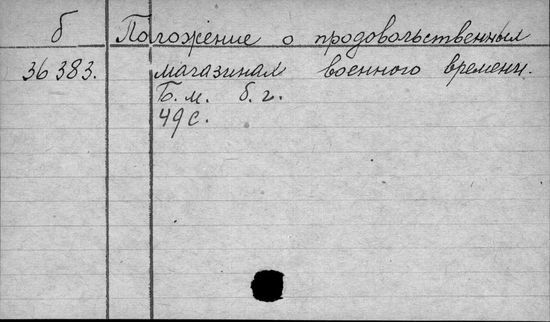 б Положение о продовольственных
36383. магазинах военного времени.
Б.м. б.г.
49с.